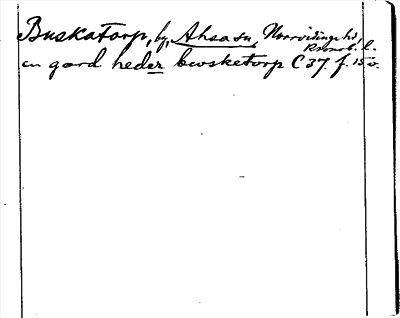 Buskatorp, by, Ahsasn, Norrvidinge hd,
Kronob. l.
en gard heder bwsketorp C 37. f. 15 v.